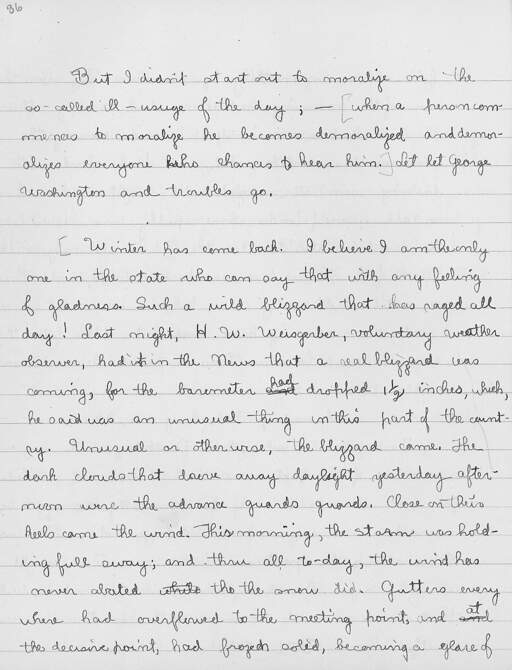 36
But I didn't start out to moralize on the
so-called ill-usuge of the day; — [when a person com-
mences to moralize he becomes demoralized and demor-
alizes everyone who chances to hear him.] Let let George
Washington and troubles go.
[ Winter has come back. I believe I am the only
one in the state who can say that with any feeling
of gladness. Such a wild blizzard that has raged all
day! Last night, H. W. Weisgerber, voluntary weather
observer, had it in the News that a real blizzard was
coming, for the barometer had dropped 1 1/2 inches, which,
he said was an unusual thing in this part of the count-
ry. Unusual or otherwise, the blizzard came. The
dark clouds that drove away daylight yesterday after-
noon were the advance guards guards. Close on their
heels came the wind. This morning, the storm was hold-
ing full sway; and thru all to-day, the wind has
never abated while tho the snow did. Gutters every
where had overflowed to the meeting point, and at
the decisive point, had frozen solid, becoming a glare of